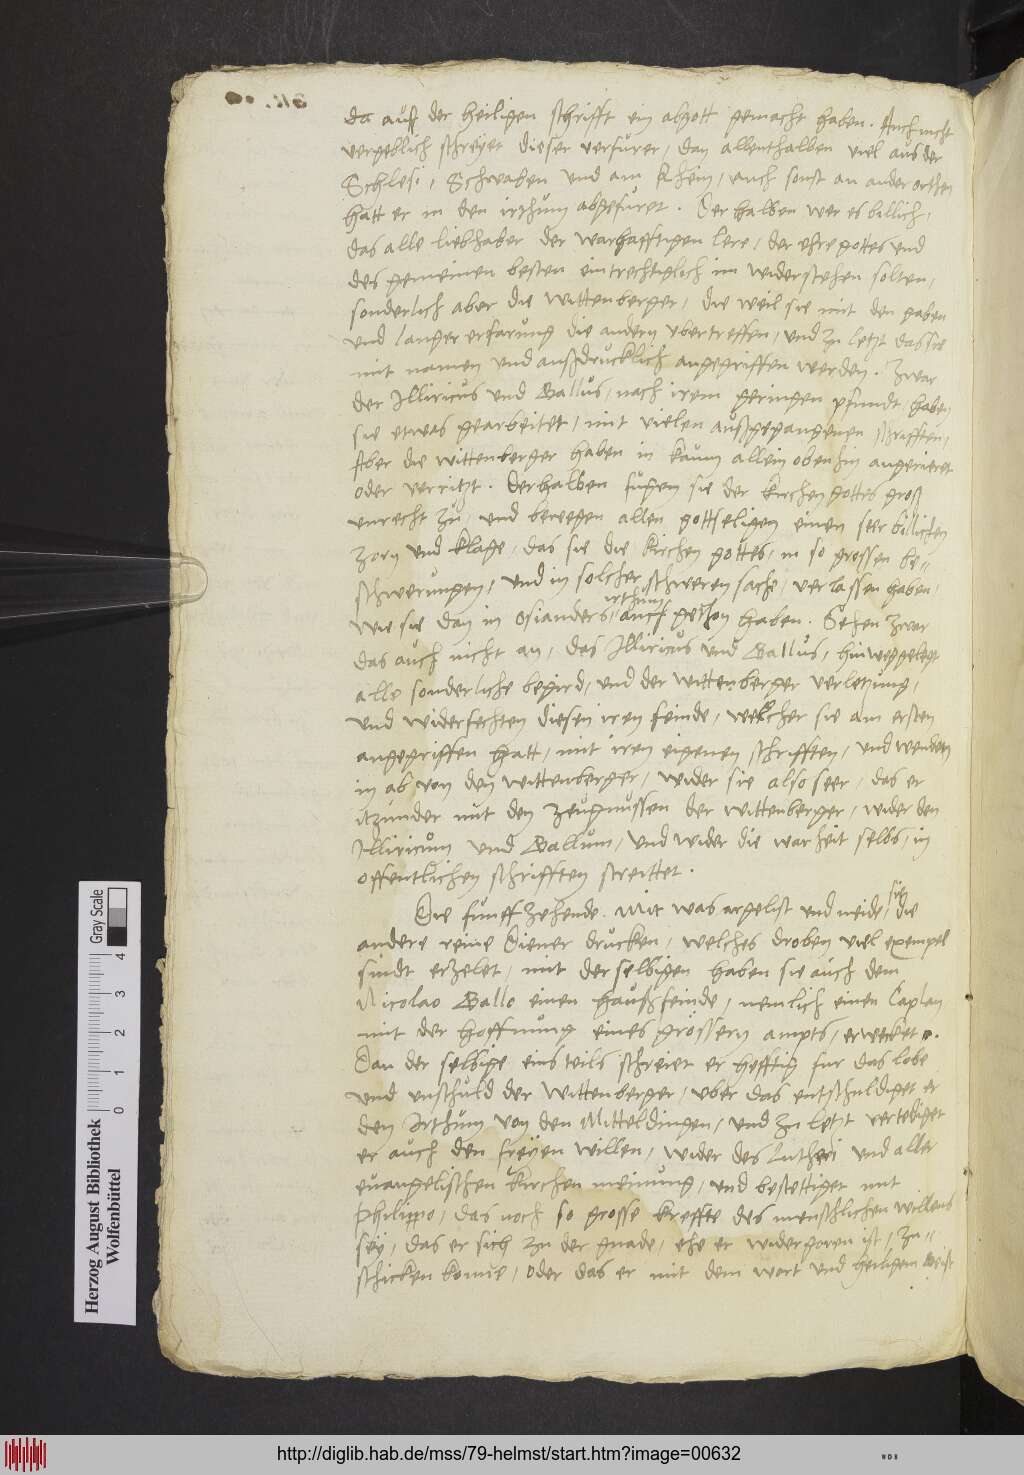 da auß der heiligen schrifft ein abgott gemacht haben. Auch nicht
vergeblich schreyet dieser verfürer, dan allenthalben viel aus der
Schlesi, Schwaben und am Rhein, auch sonst an andern orthen
hatt er in den irthum abgefüret. Derhalben wer es billich,
das alle liebhaber der warhafftigen lere, der ehre gottes und
des gemeinen besten eintrechtiglich im widerstehen solten,
sonderlich aber die Wittenberger, die weil sie mit den gaben
und langer erfarung die andern ubertreffen, und zu letzt das sie
mit namen und außdrucklich angegriffen werden. Zwar
der Illiricus und Gallus, nach irem geringen pfundt, haben
sie etwas gearbeitet, mit vielen außgegangenen schrifften,
Aber die wittenberger haben in kaum allein obenhin angerieret
oder verritzt. Derhalben fugen sie der kirchen gottes groß
unrecht zu, und bewegen allen gottseligen einen seer billichen
zorn und klage, das sie die kirchen gottes, in so grossen be-
schwerungen, und in solcher schweren sache, verlassen haben,
irthum
wie sie dan in Osianders, auch gethon haben. Sehen zwar
das auch nicht an, das Illiricus und Gallus, hinweggelegt
alle sonderliche begird, und der wittenberger verletzung,
und widerfechten diesen iren feinde, welcher sie am ersten
angegriffen hatt, mit iren eigenen schrifften, und wenden
in ab von den wittenberger, wider sie also seer, das er
itzunder mit den zeugnussen der wittenberger, wider den
Illiricum und Gallum, und wider die warheit selbs, in
offentlichen schrifften streittet.
Die funffzehende. Mit was argelist und neide, sie die
andere reine Diener drucken, welches droben viel exempel
sindt erzelet, mit derselbigen haben sie auch dem
Nicolao Gallo einen haußfeinde, nemlich einen Caplan
mit der hoffnung eines grössern ampts, erwecket.
Dan der selbige eins teils schreiet er hefftig fur das lobe
und unschuld der Wittenberger, uber das entschuldiget er
den Irthum von den Mitteldingen, und zu letzt verteidiget
er auch den freyen willen, wider des Lutheri und aller
euangelischen kirchen meinung, und bestettiget mit
Philippo, das noch so grosse kreffte des menschlichen willens
sey, das er sich zu der gnade, ehe er widergeporen ist, zu-
schicken konne, oder das er mit dem wort und heiligem Geist
Gray Scale
0 1 2 3 4
Herzog August Bibliothek
Wolfenbüttel
http://diglib.hab.de/mss/79-helmst/start.htm?image=00632
WDB